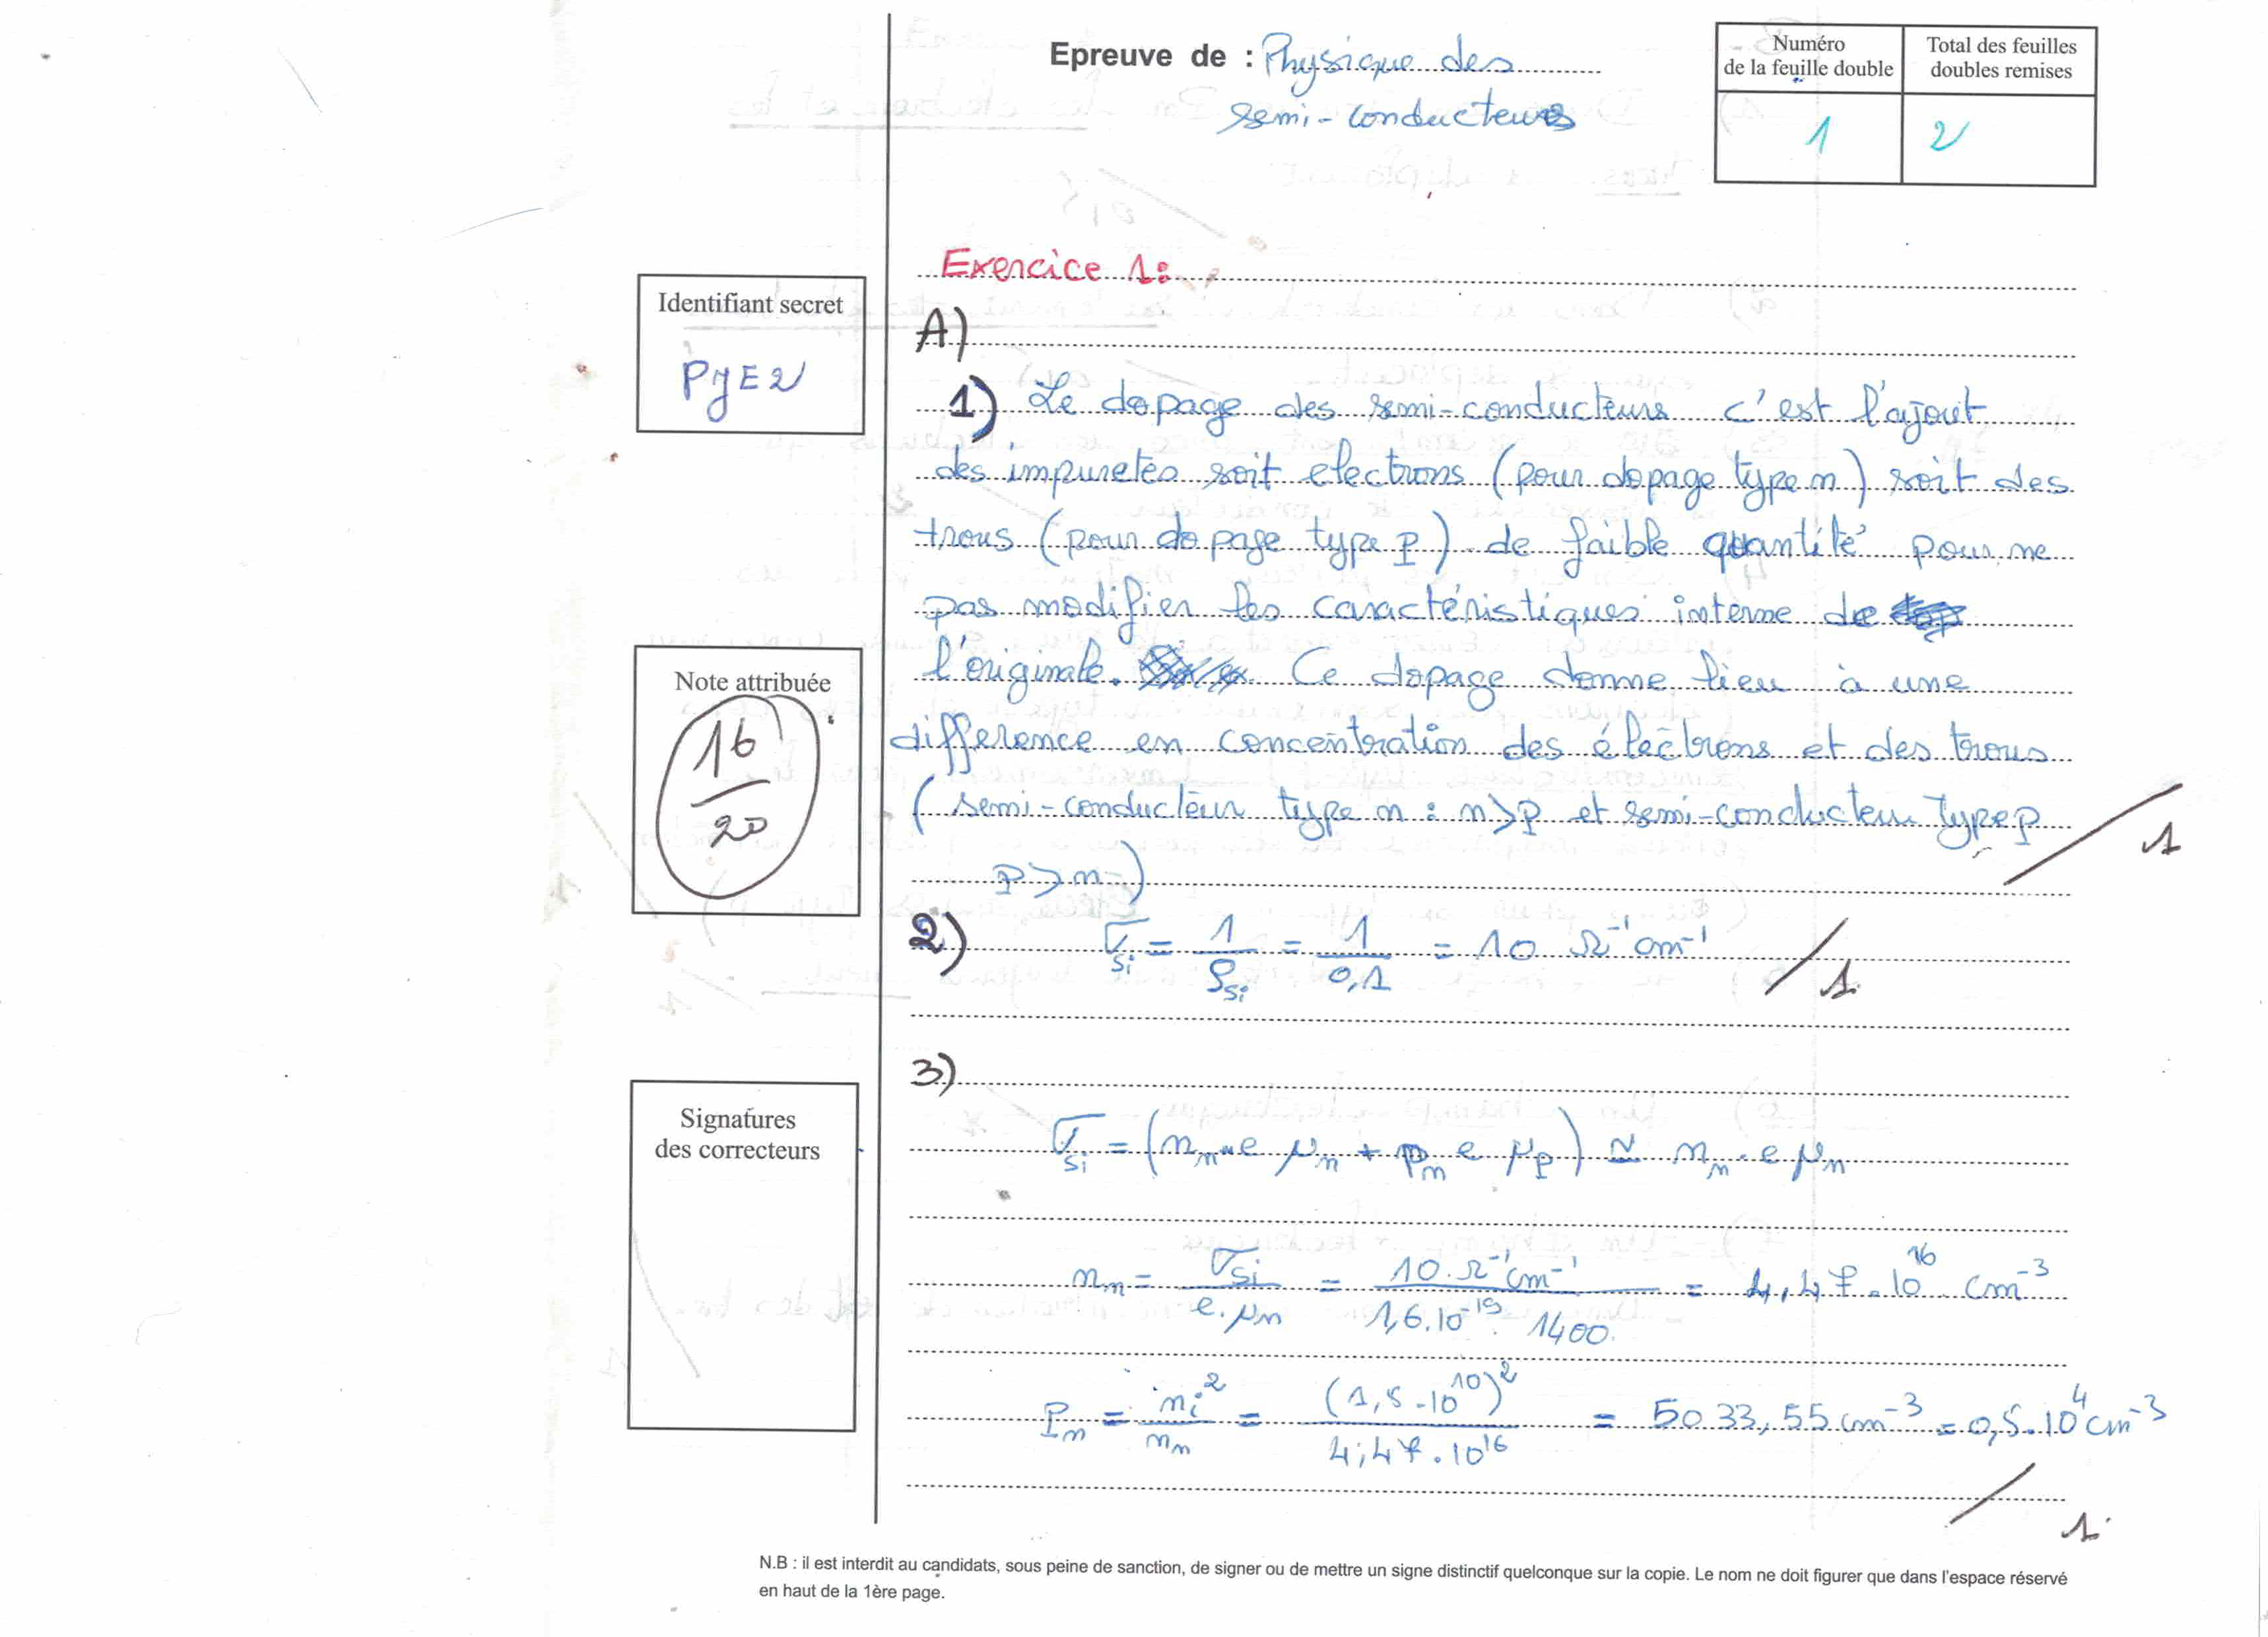 Epreuve de : Physique des
semi-conducteurs
Numéro
de la feuille double
Total des feuilles
doubles remises
1
2
Identifiant secret
PJE2
Note attribuée
16
20
Signatures
des correcteurs
Exercice 1:
A)
1) Le dopage des semi-conducteurs c'est l'ajout
des impuretes soit electrons (pour dopage type n) soit des
trous (pour dopage type P) de faible quantité pour ne
pas modifier les caractéristiques interne de
l'originale. Ce dopage donne lieu à une
difference en concentration des électrons et des trous
(semi-conducteur type n : n>p et semi-conducteur type p
P>n)
1
2) σSi = 1/ρSi = 1/0,1 = 10 Ω⁻¹cm⁻¹
1
3)
σSi = (nn e μn + pn e μp) ≃ nn . e μn
nn = σSi/e.μn = 10.Ω⁻¹cm⁻¹/1,6.10⁻¹⁹ . 1400 = 4,47.10¹⁶ cm⁻³
Pn = ni²/nn = (1,5.10¹⁰)²/4,47.10¹⁶ = 5033,55 cm⁻³ = 0,5.10⁴cm⁻³
1
N.B : il est interdit au candidats, sous peine de sanction, de signer ou de mettre un signe distinctif quelconque sur la copie. Le nom ne doit figurer que dans l'espace réservé
en haut de la 1ère page.